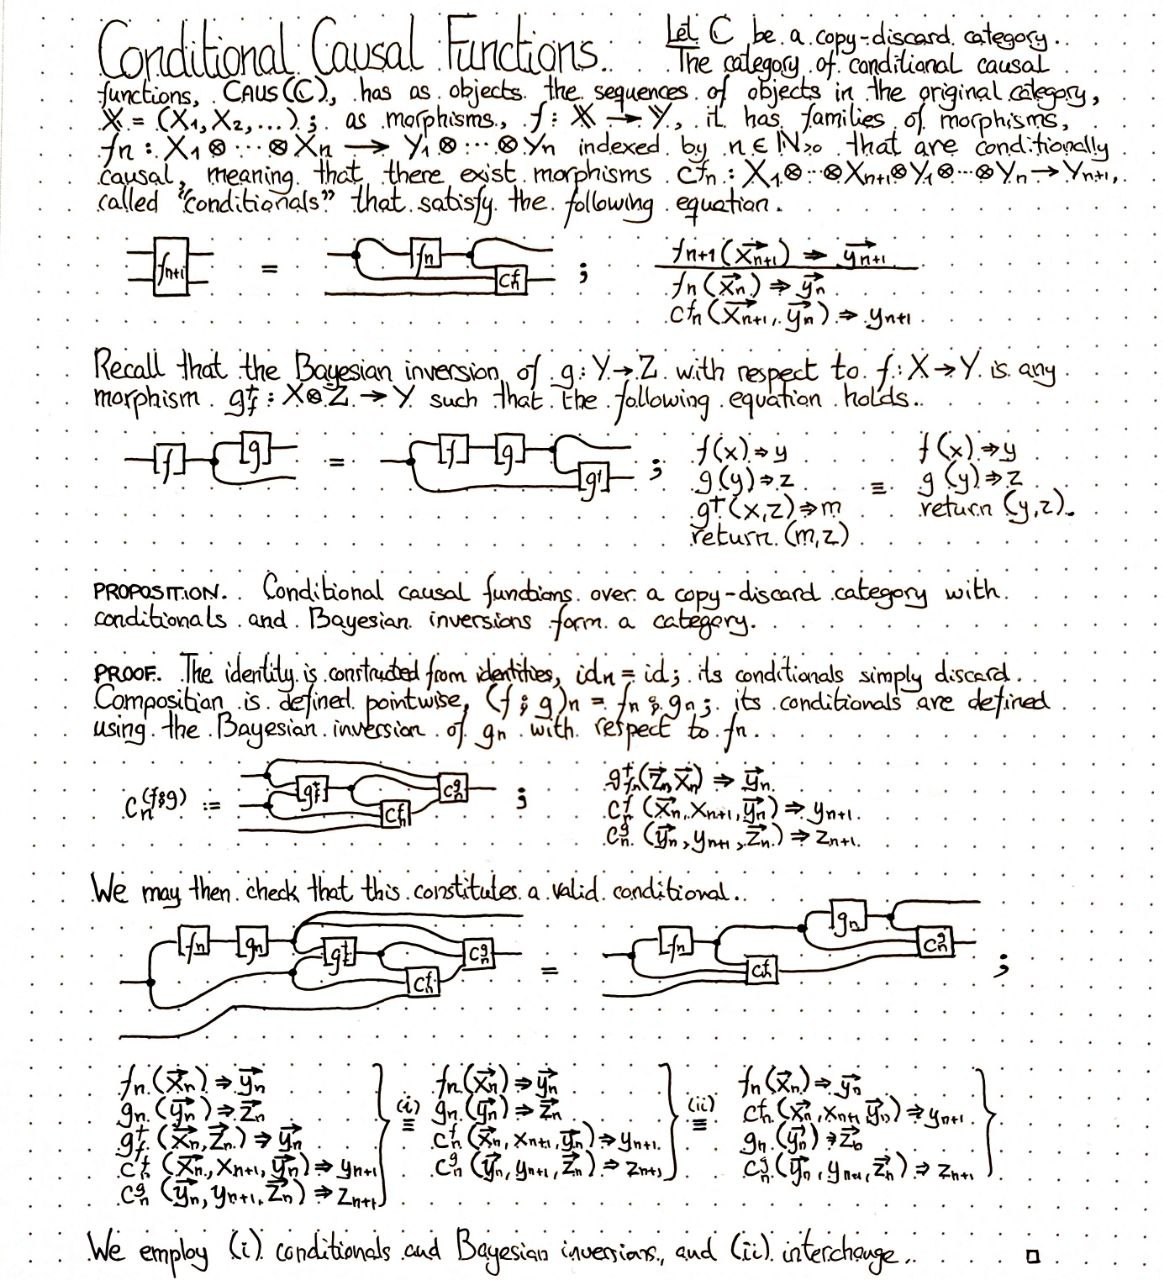 Conditional Causal Functions. Let ℂ be a copy-discard category.
The category of conditional causal
functions, CAUS(ℂ), has as objects the sequences of objects in the original category,
𝕏 = (X₁, X₂, ...); as morphisms, f : 𝕏 → 𝕐, it has families of morphisms,
fn : X₁ ⊗ ··· ⊗ Xn → Y₁ ⊗ ··· ⊗ Yn indexed by n ∈ ℕ>0 that are conditionally
causal, meaning that there exist morphisms cfn : X₁⊗···⊗Xn+1⊗Y₁⊗···⊗Yn → Yn+1,
called "conditionals" that satisfy the following equation.
fn+1 = fn cfn ; fn+1(x⃗n+1) ⇒ y⃗n+1
fn(x⃗n) ⇒ y⃗n
cfn(x⃗n+1, y⃗n) ⇒ yn+1
Recall that the Bayesian inversion of g : Y → Z with respect to f : X → Y is any
morphism g†f : X⊗Z → Y such that the following equation holds.
f g = f g g† ; f(x) ⇒ y f(x) ⇒ y
g(y) ⇒ z ≡ g(y) ⇒ z
g†(x,z) ⇒ m return (y,z).
return (m,z)
PROPOSITION. Conditional causal functions over a copy-discard category with
conditionals and Bayesian inversions form a category.
PROOF. The identity is constructed from identities, idn = id; its conditionals simply discard.
Composition is defined pointwise, (f ⨾ g)n = fn ⨾ gn; its conditionals are defined
using the Bayesian inversion of gn with respect to fn.
cn(f⨾g) := g†f cfn cgn ; g†fn(z⃗n, x⃗n) ⇒ y⃗n
cfn(x⃗n, xn+1, y⃗n) ⇒ yn+1
cgn(y⃗n, yn+1, z⃗n) ⇒ zn+1
We may then check that this constitutes a valid conditional.
fn gn g†f cfn cgn = fn cfn gn cgn ;
fn(x⃗n) ⇒ y⃗n fn(x⃗n) ⇒ y⃗n fn(x⃗n) ⇒ y⃗n
gn(y⃗n) ⇒ z⃗n (i) gn(y⃗n) ⇒ z⃗n (ii) cfn(x⃗n, xn+1, y⃗n) ⇒ yn+1
g†f(x⃗n, z⃗n) ⇒ y⃗n ≡ cfn(x⃗n, xn+1, y⃗n) ⇒ yn+1 ≡ gn(y⃗n) ⇒ z⃗n
cfn(x⃗n, xn+1, y⃗n) ⇒ yn+1 cgn(y⃗n, yn+1, z⃗n) ⇒ zn+1 cgn(y⃗n, yn+1, z⃗n) ⇒ zn+1
cgn(y⃗n, yn+1, z⃗n) ⇒ zn+1
We employ (i) conditionals and Bayesian inversions, and (ii) interchange. □